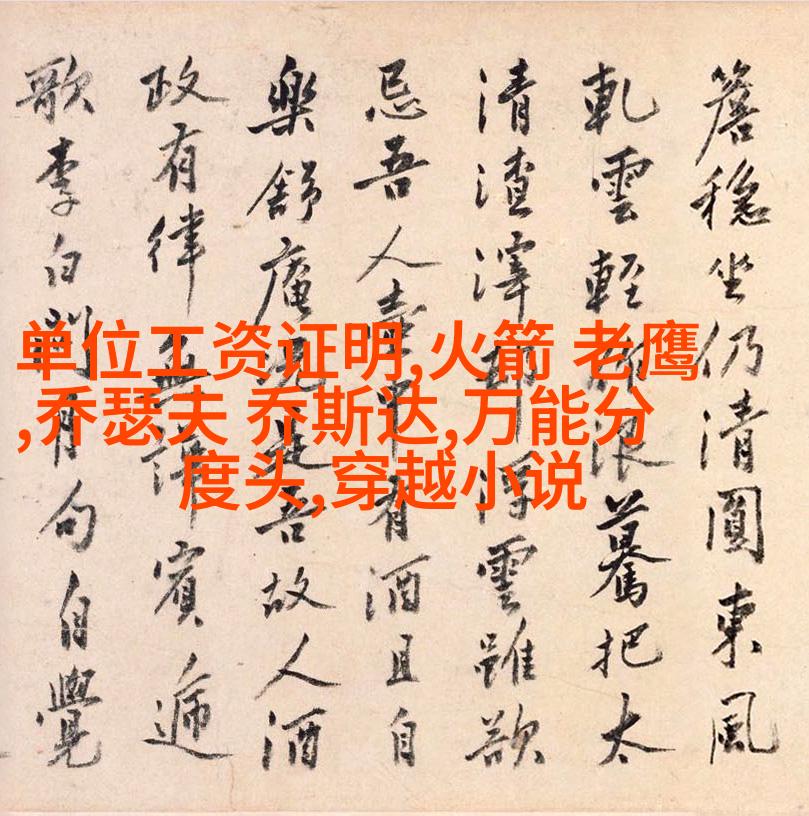 簷穩坐仍清圓東風
軋雲輕浪驀把太
清渣滓那浮雲雖欲
忌吾人有酒且自
樂舒庵況是吾故人酒
政有律無譁賓遞
歌李白有句自覺
单位工资证明,火箭 老鹰
,乔瑟夫 乔斯达,万能分
度头,穿越小说